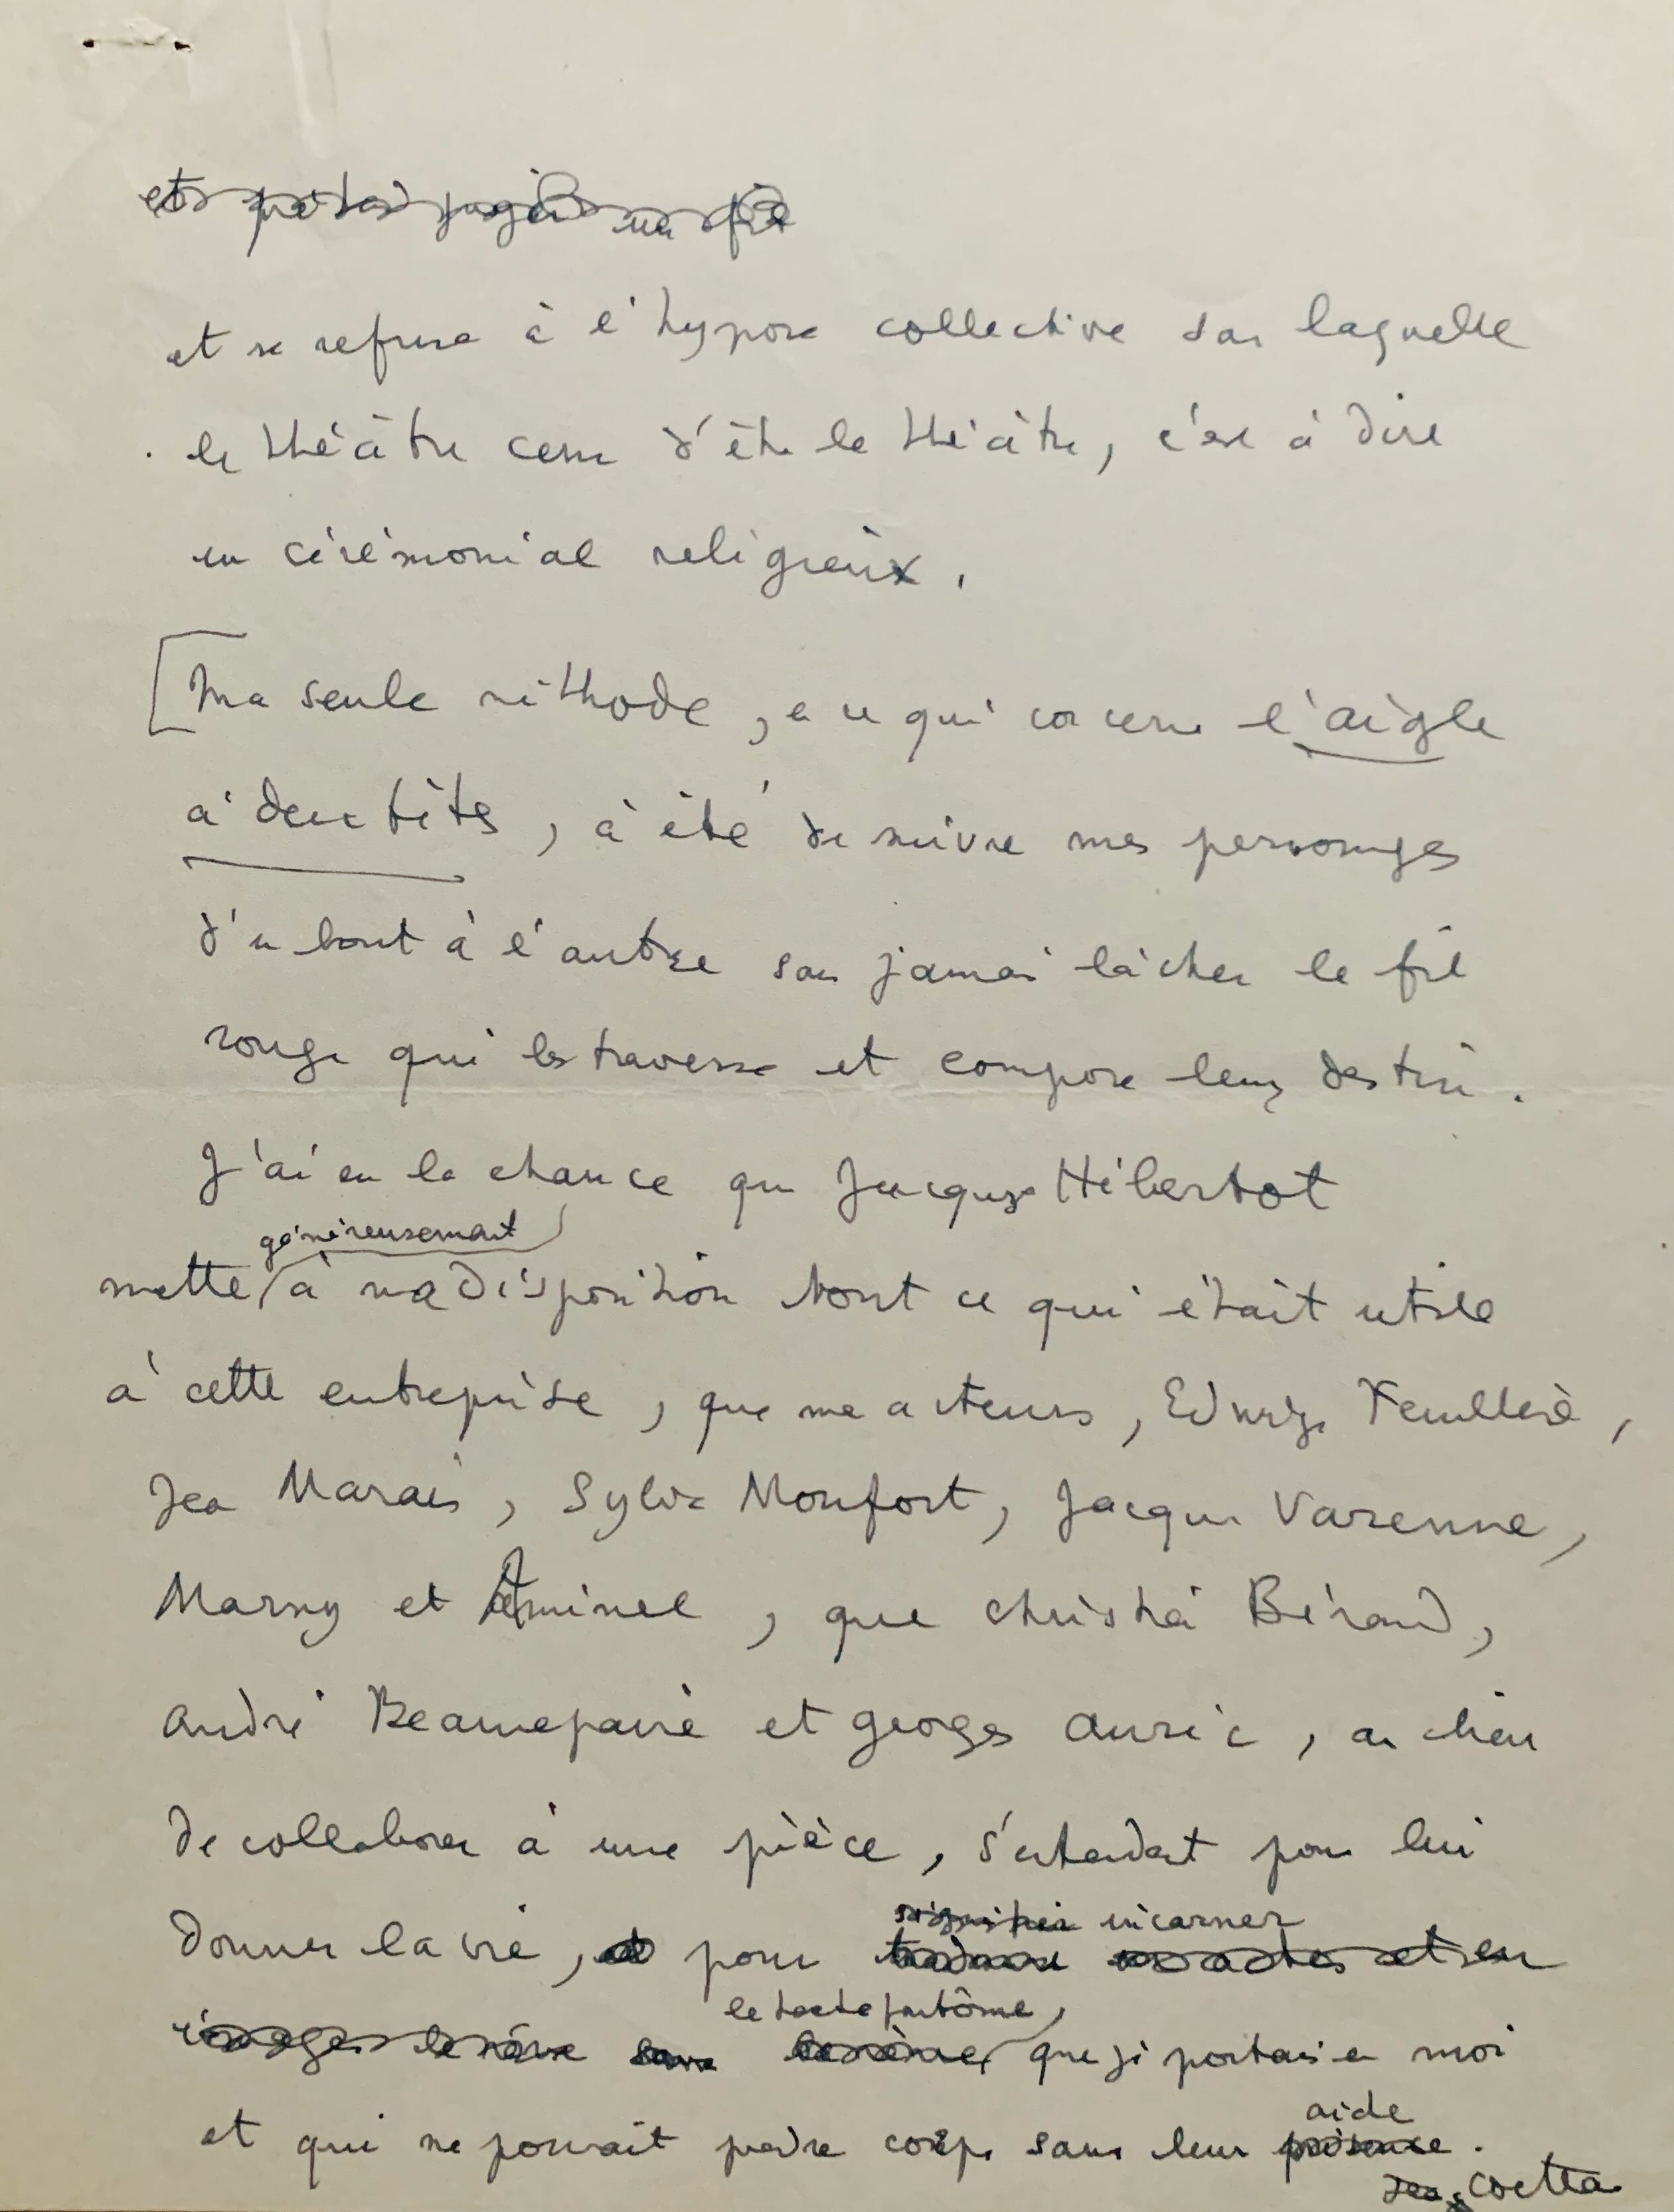 et se refuse à l'hypnose collective sans laquelle
le théâtre cesse d'être le théâtre, c'est à dire
un cérémonial religieux.
[Ma seule méthode, en ce qui concerne l'aigle
à deux têtes, à été de suivre mes personnages
d'un bout à l'autre sans jamais lâcher le fil
rouge qui les traverse et compose leur destin.
J'ai eu la chance que Jacques Hébertot
généreusement
mette à ma disposition tout ce qui était utile
à cette entreprise, que mes acteurs, Edwige Feuillère,
Jean Marais, Sylvia Monfort, Jacques Varenne,
Marny et Aminel, que Christian Bérard,
André Beaurepaire et Georges Auric, au lieu
de collaborer à une pièce, s'entendent pour lui
incarner
donner la vie, pour
le texte fantôme,
que je portais en moi
aide
et qui ne pouvait prendre corps sans leur présence.
Jean Cocteau